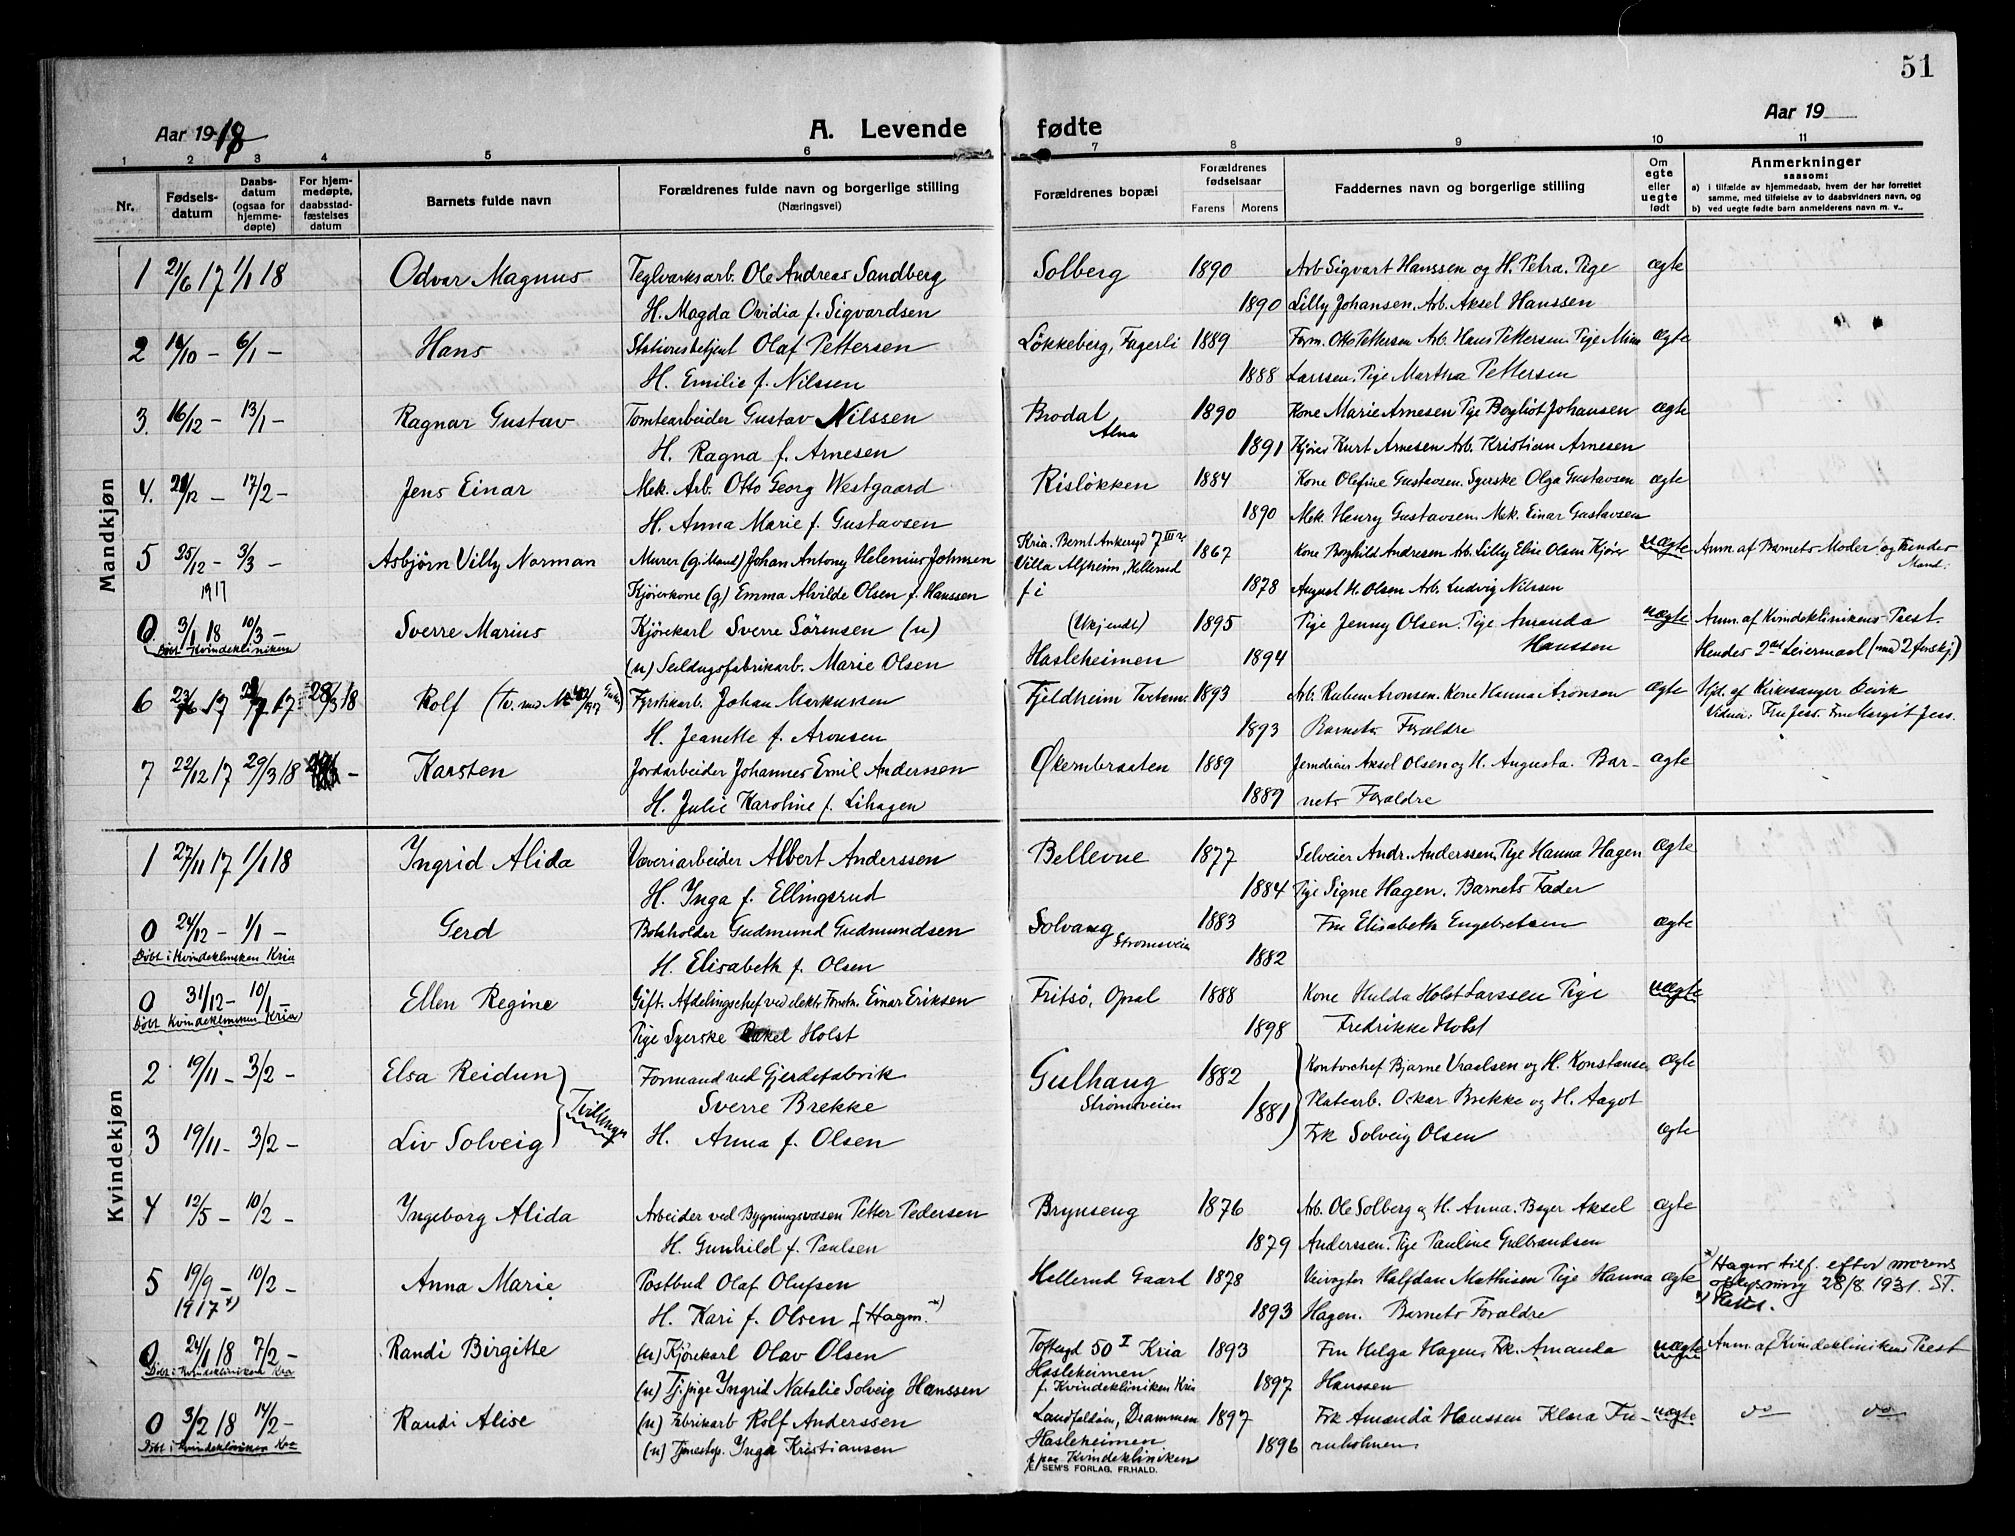 51
Aar 1918
A. Levende fødte
Aar 19
1 2 3 4 5 6 7 8 9 10 11
Nr.
Fødsels-
datum
Daabs-
datum
(ogsaa for
hjemme-
døpte)
For hjem-
medøpte,
daabsstad-
fæstelses
datum
Barnets fulde navn
Forældrenes fulde navn og borgerlige stilling
(Næringsvei)
Forældrenes bopæl
Forældrenes
fødselsaar
Farens Morens
Faddernes navn og borgerlige stilling
Om
egte
eller
uegte
født
Anmerkninger
saasom:
a) i tilfælde av hjemmedaab, hvem der har forrettet
samme, med tilføielse av to daabsvidners navn, og
b) ved uegte fødte barn anmelderens navn m. v..
Mandkjøn
1 21/6 17 1/1 18 Odvar Magnus Teglverksarb. Ole Andreas Sandberg Solberg 1890 Arb Sigvart Hanssen og H. Petra. Pige ægte
H. Magda Ovidia f. Sigvardsen 1890 Lilly Johansen. Arb. Aksel Hanssen
2 /10 – 6/1 – Hans Stationsbetjent Olaf Pettersen Løkkeberg, Fagerli 1889 Form. Otto Pettersen Arb. Hans Pettersen. Pige Mina ægte
H. Emilie f. Nilssen 1888 Larssen. Pige Martha Pettersen
3. 16/12 – 13/1 – Ragnar Gustav Tomtearbeider Gustav Nilssen Brodal 1890 Kone Marie Arnesen Pige Bergliot Johansen ægte
Alna
H. Ragna f. Arnesen 1891 Kjører Kurt Arnesen Arb. Kristian Arnesen
4. /12 – 17/2 – Jens Einar Mek. Arb. Otto Georg Westgaard Risløkken 1884 Kone Olefine Gustavsen. Syerske Olga Gustavsen ægte
H. Anna Marie f. Gustavsen 1890 Mek. Henry Gustavsen. Mek. Einar Gustavsen
5 25/12 – 3/3 – Asbjørn Villy Norman Murer (g. Mand) Johan Antony Helenius Johnsen Kria. Bernt Ankersgd 7 III 1867 Kone Borghild Andresen Arb. Lilly Elise Olsen Kjører uægte Anm. af Barnets Moder og Hendes Mand.
1917 Kjørerkone (g) Emma Alvilde Olsen f. Hanssen Villa Alfheim, Hellerud 1878 August H. Olsen Arb. Ludvig Nilssen
f i
0. 3/1 18 10/3 – Sverre Marius Kjørekarl Sverre Sørensen (u) (Ukjendt) 1895 Pige Jenny Olsen. Pige Amanda uægte Anm. af Kvindeklinikens Prest.
Døbt Kvindekliniken (u) Seildugsfabrikarb. Marie Olsen Hasleheimen 1894 Hanssen Hendes 2det Leiermaal (med 2 forskj.)
6 23/6 17 /7 17 28/3 18 Rolf Fyrstikarb. Johan Markussen Fjeldheim 1893 Arb. Ruben Aronsen. Kone Hanna Aronsen ægte Hjd. af Kirkesanger
H. Jeanette f. Aronsen 1893 Barnets Forældre Vidner: Fru Jess. Frk Margit Jess.
7 22/12 17 29/3 18 – Karsten Jordarbeider Johannes Emil Anderssen Økernbraaten 1889 Jerndreier Aksel Olsen og H. Augusta. Bar- ægte
H. Julie Karoline f. Lihagen 1889 nets Forældre
Kvindekjøn
1 27/11 17 1/1 18 Ingrid Alida Væveriarbeider Albert Anderssen Bellevue 1877 Selveier Andr. Anderssen, Pige Hanna Hagen ægte
H. Inga f. Ellingsrud 1884 Pige Signe Hagen. Barnets Fader
0 24/12 – 1/1 – Gerd Bokholder Gudmund Gudmundsen Solvang 1883 Fru Elisabeth Engebretsen ægte
Døbt i Kvindekliniken Kria H. Elisabeth f. Olsen Strømsveien 1882
0 31/12 – 10/1 – Ellen Regine Gift. Afdelingschef ved elektr. Forretn. Einar Eriksen Fritsø, Opsal 1888 Kone Hulda Holst Larssen Pige uægte
Døbt Kvindekliniken Kria Pige Syerske Rakel Holst 1898 Fredrikke Holst
2 19/11 – 3/2 – Elsa Reidun Formand ved Gjerdefabrik Gulhaug 1882 Kontorchef Bjarne Vraalsen og H. Konstanse ægte
Tvillinger Sverre Brekke Strømsveien 1881 Platearb. Oskar Brekke og H. Aagot
3 19/11 – 3/2 – Liv Solveig H. Anna f. Olsen Frk Solveig Olsen ægte
4 12/5 – 10/2 – Ingeborg Alida Arbeider ved Bygningsvæsen Petter Pedersen Brynseng 1876 Arb. Ole Solberg og H. Anna. Bager Aksel ægte
H. Gunhild f. Paulsen 1879 Anderssen. Pige Pauline Gulbrandsen
5 19/9 – 10/2 – Anna Marie Postbud Olaf Olufsen Hellerud Gaard 1878 Veivogter Halfdan Mathisen Pige Hanna ægte x) Hagen tilf. efter morens
1917 x) H. Kari f. Olsen (Hagen x) 1893 Hagen. Barnets Forældre oplysning 28/8 1931. ST.
0 24/1 18 7/2 – Randi Birgitte (u) Kjørekarl Olav Olsen Toftesgd 50 I Kria 1893 Fru Helga Hagen, Frk. Amanda uægte Anm. af Kvindeklinikens Prest
Døbt i Kvindekliniken Kra (u) Tj.pige Ingrid Natalie Solveig Hanssen Hasleheimen 1897 Hanssen
f. Kvindekliniken Kria
0 3/2 18 14/2 – Randi Alise (u) Fabrikarb Rolf Anderssen Landfaldøen, Drammen 1897 Frk Amanda Hanssen Klara Fu- uægte do do
Døbt i Kvindekliniken Kra (u) Tjenestep. Inga Kristiansen Hasleheimen 1896 ruholmen
f. paa Kvindekliniken
E. SEM'S FORLAG, FR.HALD.